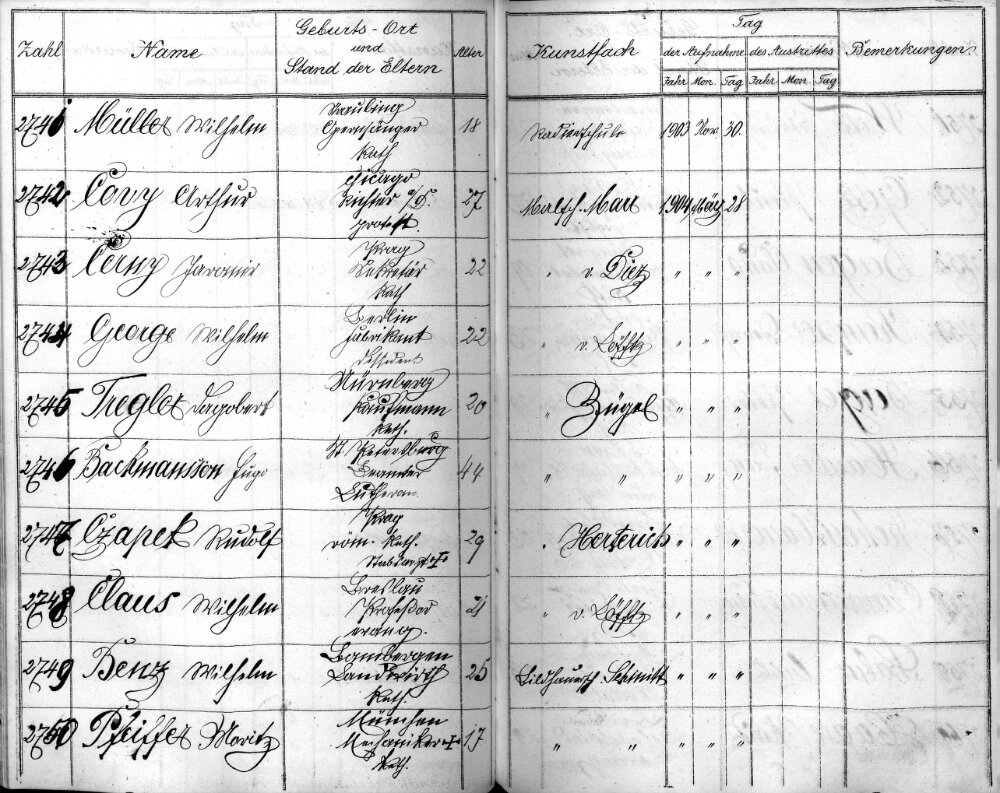 Zahl Name Geburts-Ort und Stand der Eltern Alter Kunstfach Tag der Aufnahme des Austrittes Bemerkungen.
Jahr Mon. Tag Jahr Mon. Tag
2741 Müller Wilhelm
Opernsänger 18
Kath
Radierschule 1903 Nov 30.
2742 Arthur
Chicago
Richter a/D. 27
protest.
Malsch. Marr 1904 März 28
2743 Černy Jaromir
Prag
Sekretär 22
Kath
" v. Diez " " "
2744 George Wilhelm
Berlin
Fabrikant 22
Dissident
" v. Löfftz " " "
2745 Tregler Dagobert
Nürnberg
Kaufmann 20
Kath.
" Zügel " " "
2746 Backmansson Hugo
St. Petersburg
Beamter 44
Lutheran.
" " " " "
2747 Czapek Rudolf
Prag
röm. Kath. 29
Stabsarzt †
" Herterich " " "
2748 Claus Wilhelm
Breslau
Professor 21
evang.
" v. Löfftz " " "
2749 Benz Wilhelm
Landwirth 25
Kath.
Bildhauersch Schmitt " " "
2750 Pfeiffer Moritz
München
Mechaniker † 17
Kath.
" " " " "